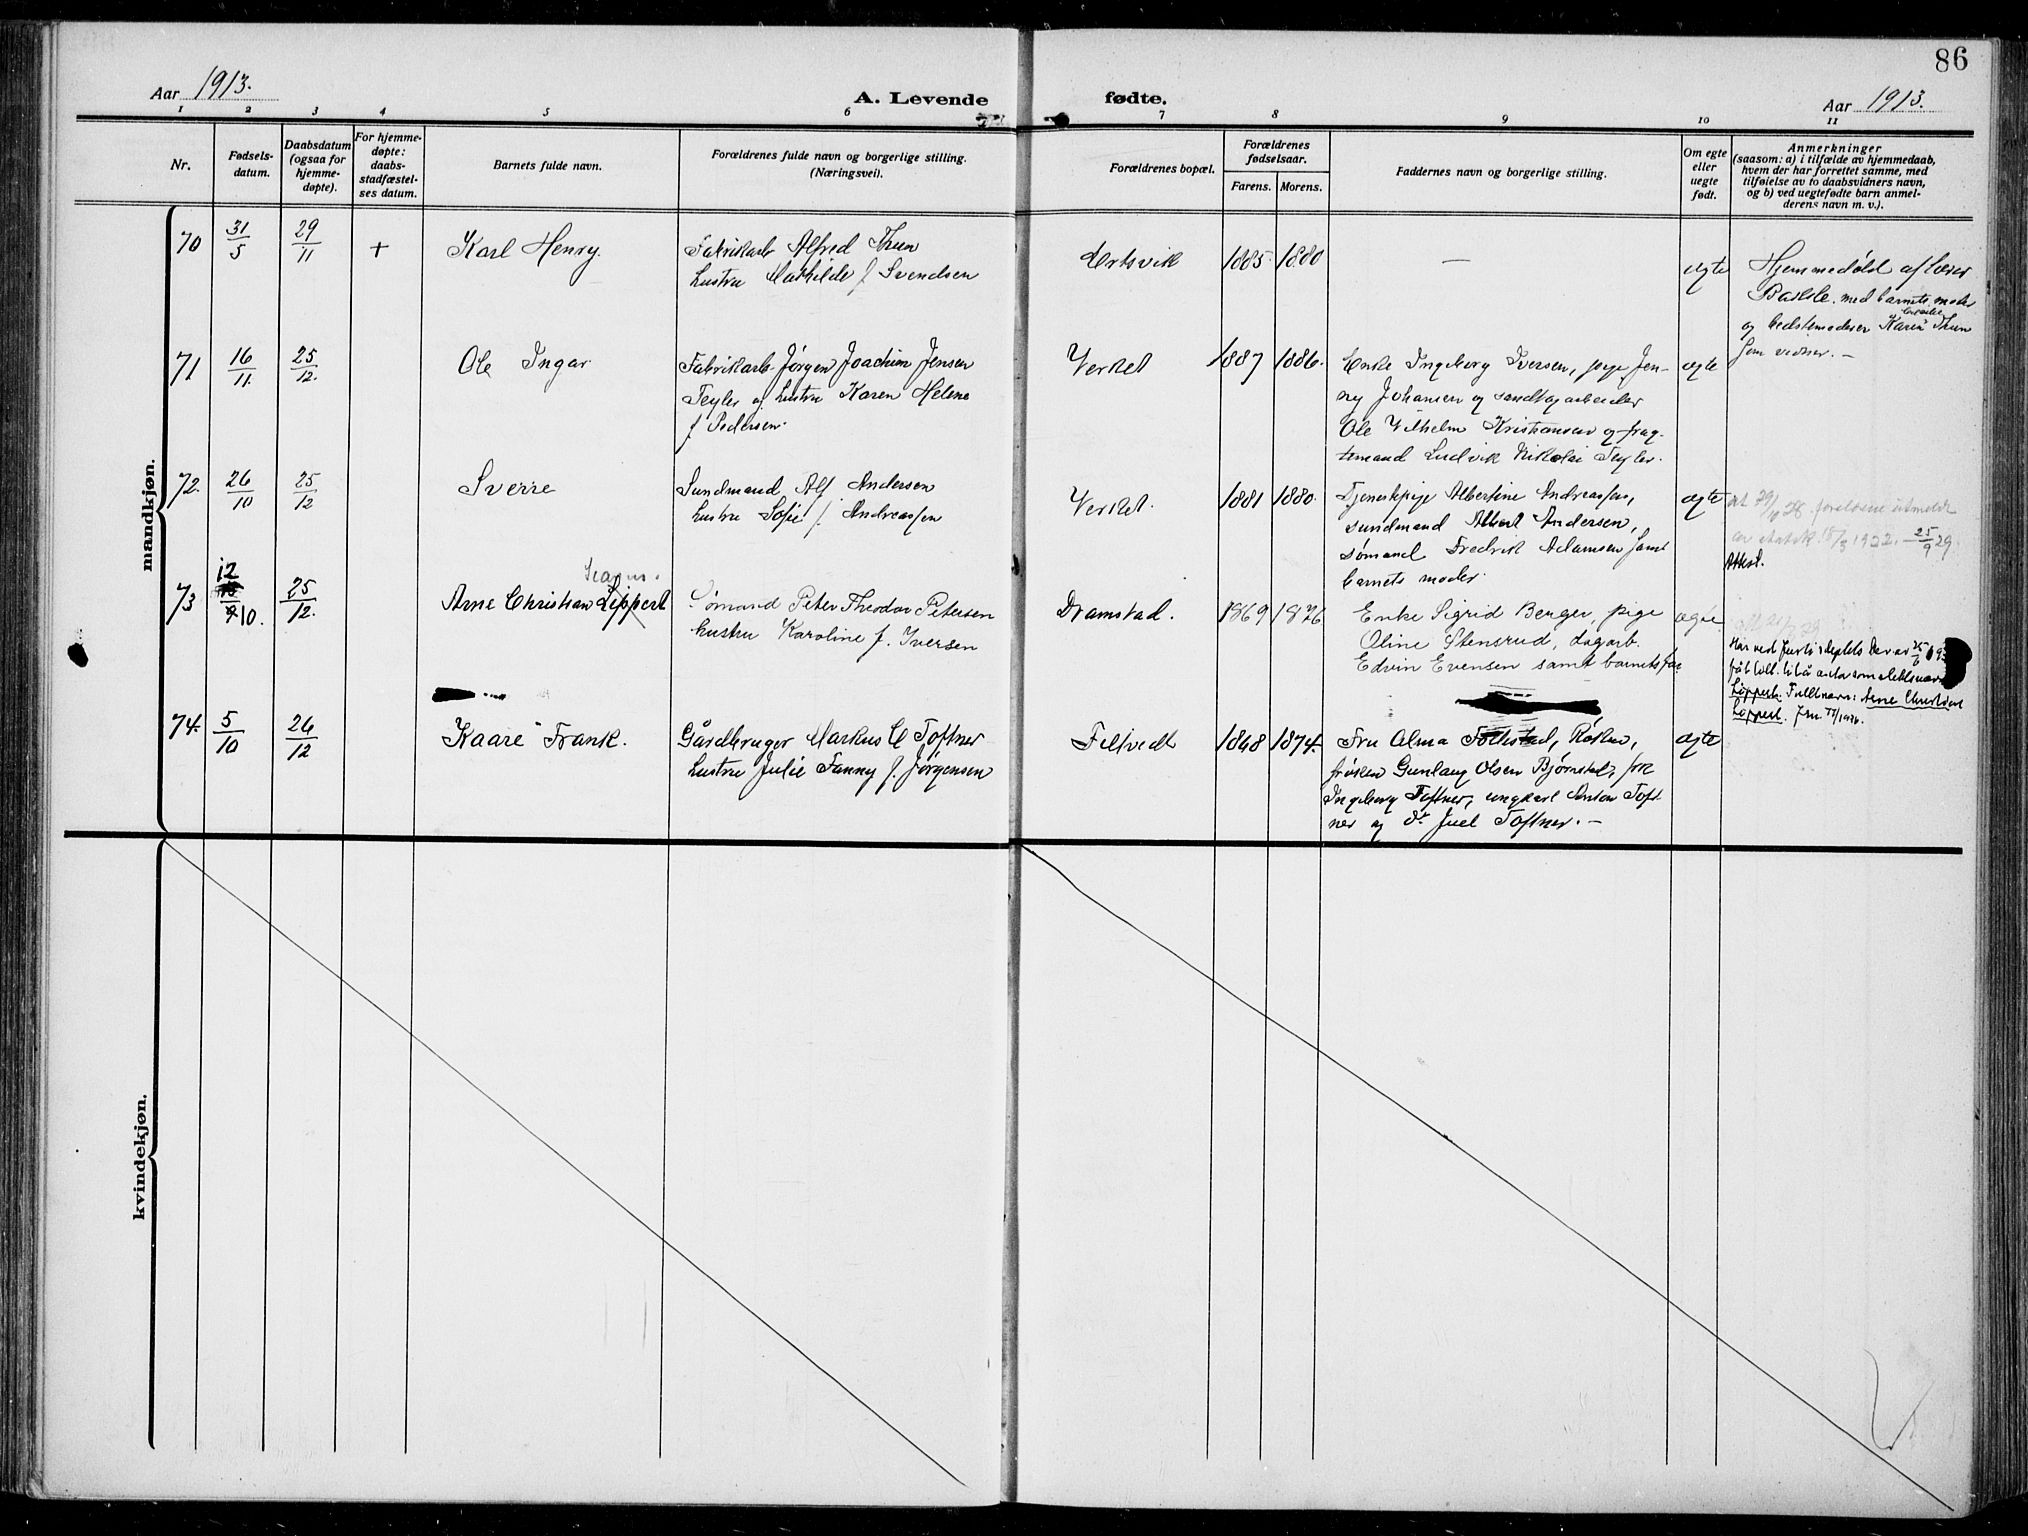 86
Aar 1913.
A. Levende fødte.
Aar 1913.
1 2 3 4 5 6 7 8 9 10 11
Nr.
Fødsels-
datum.
Daabsdatum
(ogsaa for
hjemme-
døpte).
For hjemme-
døpte:
daabs-
stadfæstel-
ses datum.
Barnets fulde navn.
Forældrenes fulde navn og borgerlige stilling.
(Næringsvei).
Forældrenes bopæl.
Forældrenes
fødselsaar.
Farens. Morens.
Faddernes navn og borgerlige stilling.
Om egte
eller
uegte
født.
Anmerkninger
(saasom: a) i tilfælde av hjemmedaab,
hvem der har forrettet samme, med
tilføielse av to daabsvidners navn,
og b) ved uegtefødte barn anmel-
derens navn m. v.).
mandkjøn.
70 31/5 29/11 + Karl Henry.
Fabrikarb Alfred Thun
hustru Mathilde f Svendsen
Ertsvik 1885 1880 — egte
Hjemmedøbt af lærer
med barnets moder
og bedstemoder Karen Thun
som vidner. —
71 16/11. 25/12. Ole Ingar
Fabrikarb Jørgen Joachim Jensen
Teyler og hustru Karen Helene
f Pedersen.
Verket 1887 1886.
Enke Ingeborg Iversen, pige Jen-
ny Johansen og sandtagarbeider
Ole Vilhelm Kristiansen og frag-
temand Ludvik Nikolai Teyler.
egte
72. 26/10 25/12 Sverre
Sundmand Alf Andersen
hustru Sofie f. Andreassen
Verket. 1881 1880.
Tjenestpige Albertine Andreassen,
sundmand Albert Andersen,
sømand Fredrik Adamsen samt
barnets moder.
egte
29/10 28. foreldrene utmeldt
av statsk. 1922. — 25/9 29.
Attest.
73 12/10. 25/12. Arne Christian Lippert
Sømand Peter Theodor Petersen
hustru Karoline f. Iversen
Dramstad. 1869 1876
Enke Sigrid Berger, pige
Oline Stensrud, dagarb.
Edvin Evensen samt barnets far
egte
Har ved Justisdeplets
Lippert. Fullt navn: Arne Christian
Lippert.
74. 5/10 26/12 Kaare Frank.
Gårdbruger Markus C Toftner
hustru Julie Fanny f. Jørgensen
Feltvedt 1868 1874.
Fru Alma Røken,
frøken Gunlaug Olsen Bjørnstad, frk
Ingeborg Toftner, ungkarl Anton Toft
ner og dº Juel Toftner. —
egte
kvindekjøn.